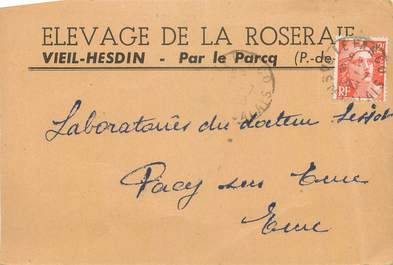 ELEVAGE DE LA ROSERAIE
VIEIL-HESDIN - Par le Parcq (P.-de
RF
Laboratoires du docteur
Pacy sur Eure
Eure